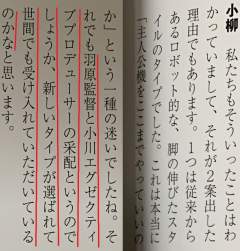 小柳　私たちもそういったことはわ
かっていまして、それが2案出した
理由でもあります。1つは従来から
あるロボット的な、脚の伸びたスタ
イルのタイプでした。これは本当に
「主人公機をここまでやっていいの
か」という一種の迷いでしたね。そ
れでも羽原監督と小川エグゼクティ
ブプロデューサーの采配というので
しょうか、新しいタイプが選ばれて
世間でも受け入れていただいている
のかなと思います。